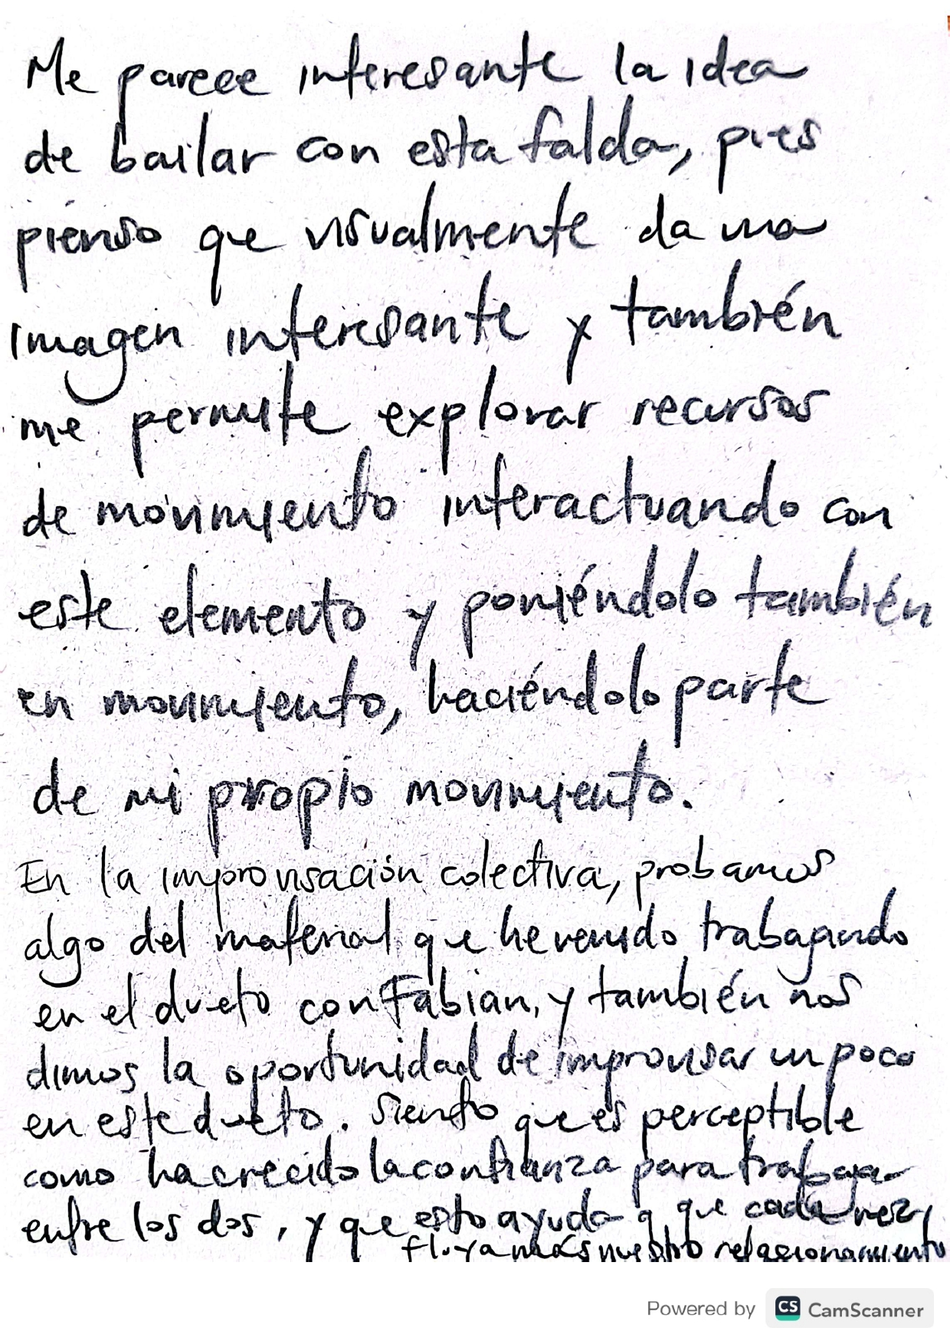 Me parece interesante la idea
de bailar con esta falda, pues
pienso que visualmente da una
imagen interesante y también
me permite explorar recursos
de movimiento interactuando con
este elemento y poniéndolo también
en movimiento, haciéndolo parte
de mi propio movimiento.
En la improvisación colectiva, probamos
algo del material que he venido trabajando
en el dueto con Fabian, y también nos
dimos la oportunidad de improvisar un poco
en este dueto. Siento que es perceptible
como ha crecido la confianza para trabajar
entre los dos, y que esto ayuda a que cada vez
fluya más nuestro relacionamiento
Powered by CS CamScanner